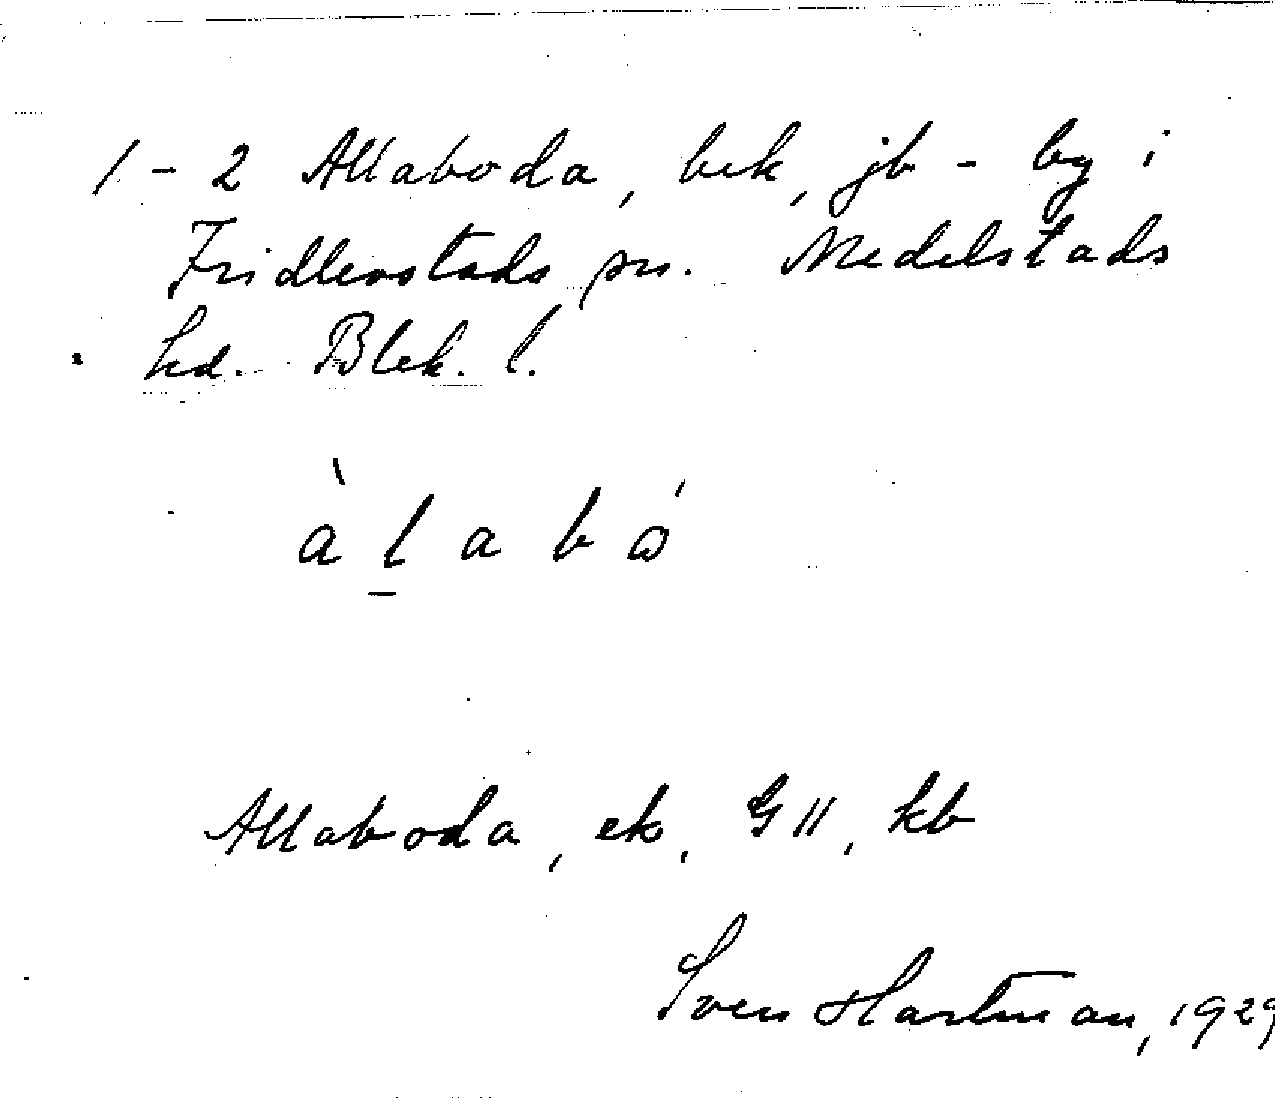 1-2 Allaboda, bek, jb - by i
Fridlevstads sn. Medelstads
hd. Blek. l.
àlabó
Allaboda, ek, GII, kb
Sven Hartman, 1929